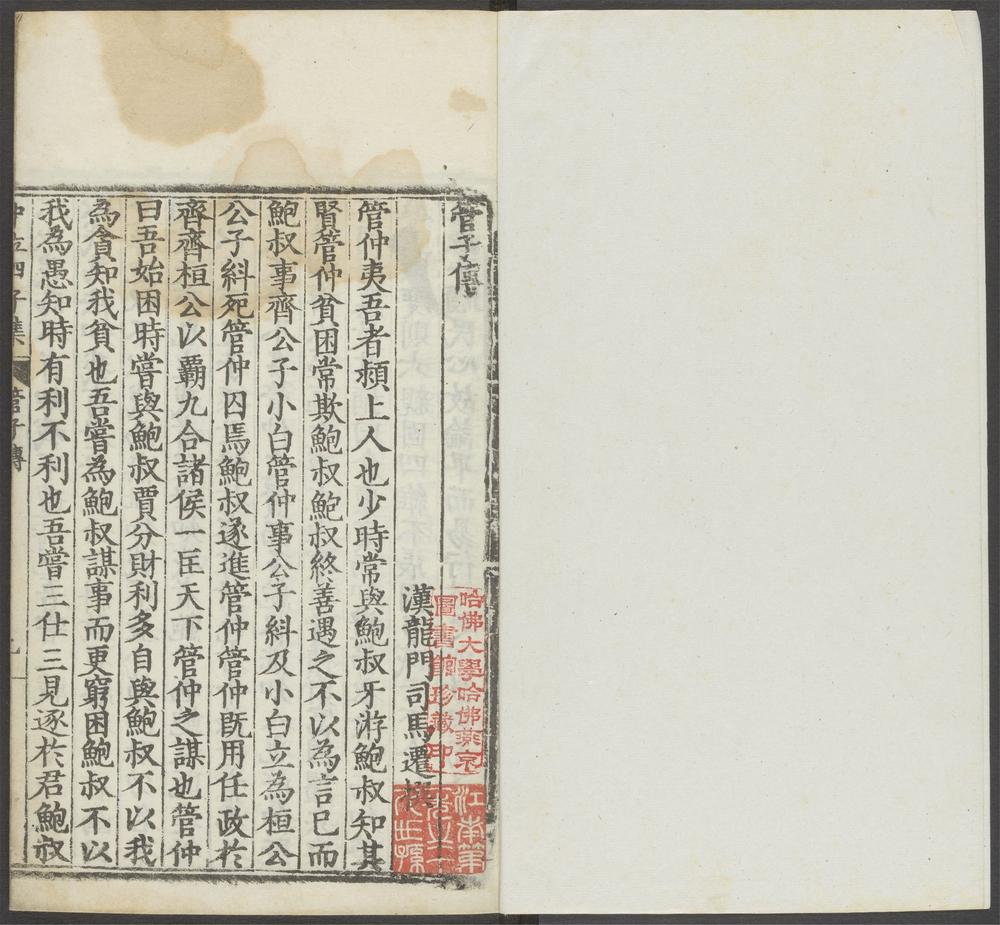 管子傳
漢龍門司馬遷撰
管仲夷吾者潁上人也少時常與鮑叔牙游鮑叔知其
賢管仲貧困常欺鮑叔鮑叔終善遇之不以為言已而
鮑叔事齊公子小白管仲事公子糾及小白立為桓公
公子糾死管仲囚焉鮑叔遂進管仲管仲既用任政於
齊齊桓公以霸九合諸侯一匡天下管仲之謀也管仲
曰吾始困時嘗與鮑叔賈分財利多自與鮑叔不以我
為貪知我貧也吾嘗為鮑叔謀事而更窮困鮑叔不以
我為愚知時有利不利也吾嘗三仕三見逐於君鮑叔
四子集 管子傳
哈佛大學哈佛燕京
圖書館珍藏印
江南第